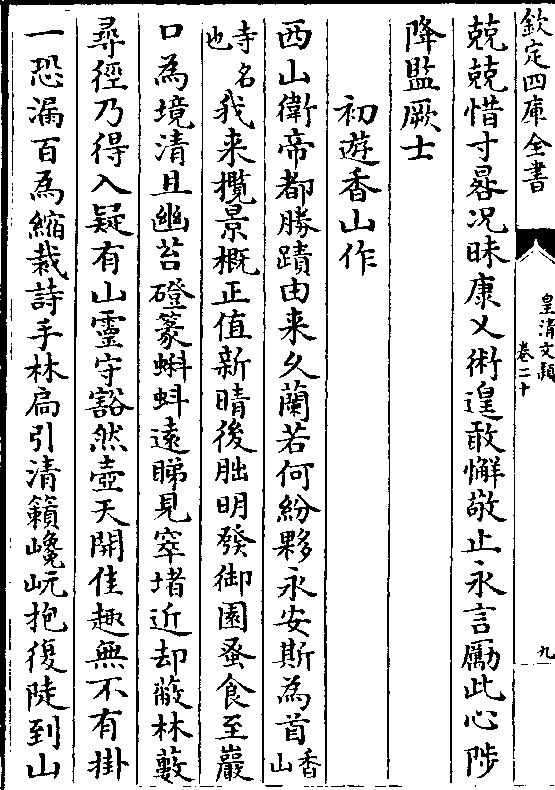 欽定四庫全書
皇清文穎
卷二十
九
兢兢惜寸晷况昧康乂術遑敢懈敬止永言勵此心陟
降監厥士
初遊香山作
西山衛帝都勝蹟由来久蘭若何紛夥永安斯為首香山
寺名也我来攬景概正值新晴後朏明發御園蚤食至巖
口為境清且幽苔磴篆蝌蚪遠睇見窣堵近却蔽林藪
尋徑乃得入疑有山靈守豁然壺天開佳趣無不有掛
一恐漏百為縮裁詩手林扃引清籟巉岏抱復陡到山